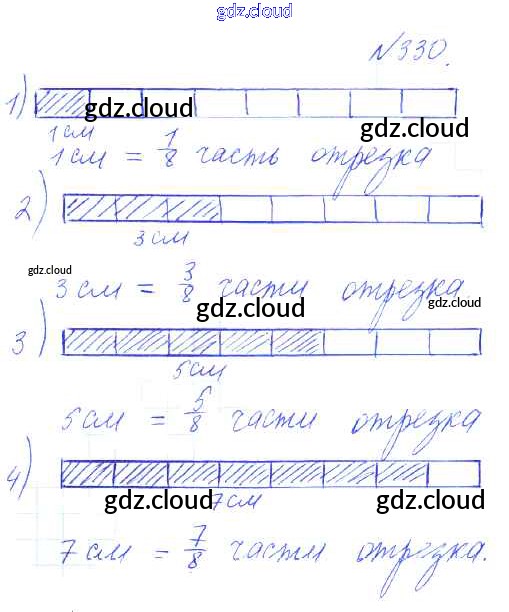 gdz.cloud
№330.
1)
gdz.cloud
gdz.cloud
1см
1см = 1/8 часть отрезка
2)
3см
gdz.cloud
3см = 3/8 части отрезка
gdz.cloud
gdz.cloud
3)
5см
5см = 5/8 части отрезка
4)
7см
gdz.cloud
gdz.cloud
7см = 7/8 части отрезка.